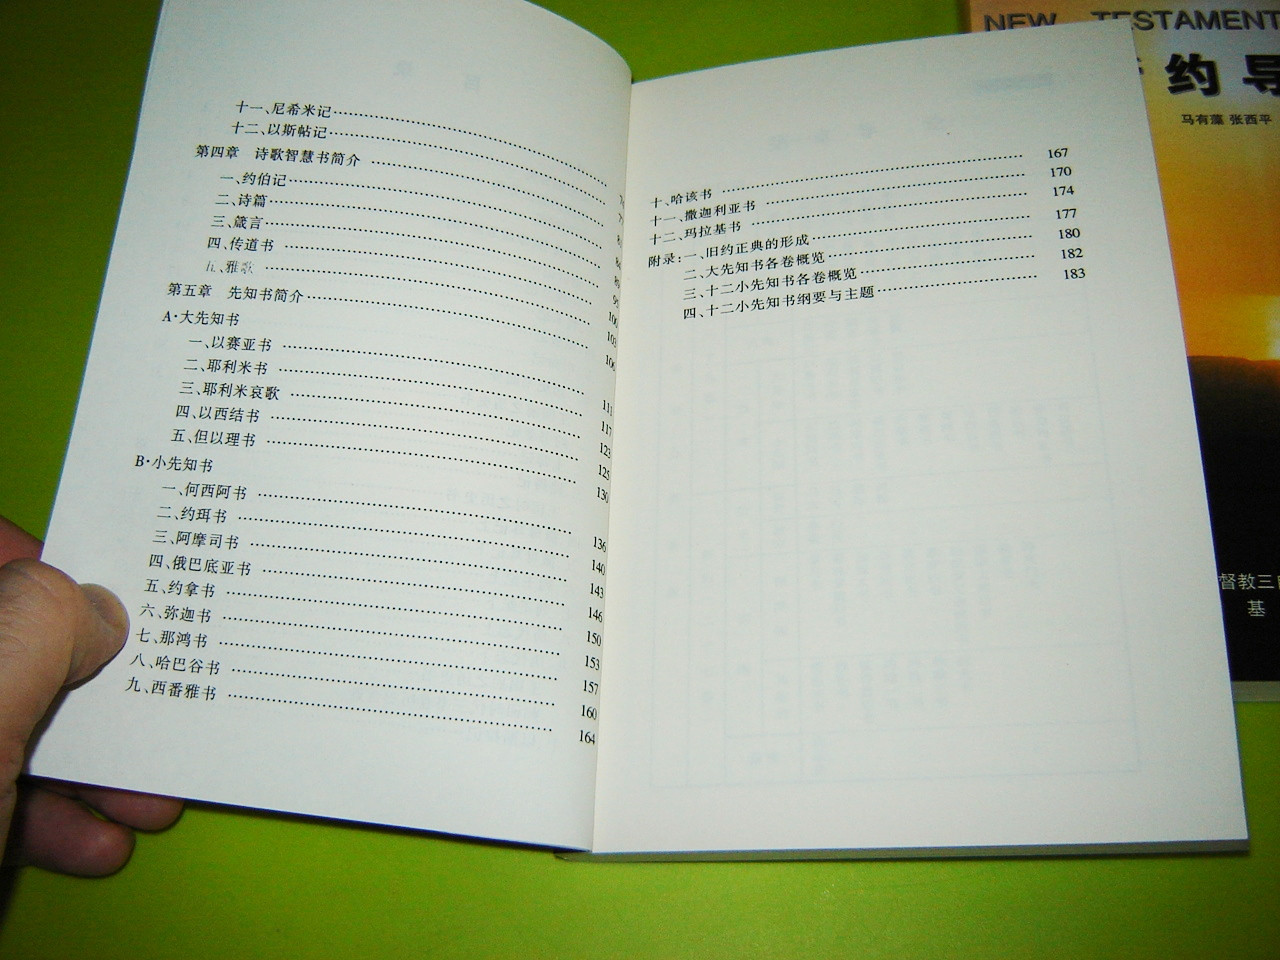 十一、尼希米记
十二、以斯帖记
第四章 诗歌智慧书简介
一、约伯记
二、诗篇
三、箴言 95
四、传道书 100
五、雅歌 103
第五章 先知书简介 106
A·大先知书
一、以赛亚书 111
二、耶利米书 117
三、耶利米哀歌 123
四、以西结书 125
五、但以理书 130
B·小先知书
一、何西阿书 136
二、约珥书 140
三、阿摩司书 143
四、俄巴底亚书 146
五、约拿书 150
六、弥迦书 153
七、那鸿书 157
八、哈巴谷书 160
九、西番雅书 164
十、哈该书 167
十一、撒迦利亚书 170
十二、玛拉基书 174
附录:一、旧约正典的形成 177
二、大先知书各卷概览 180
三、十二小先知书各卷概览 182
四、十二小先知书纲要与主题 183
NEW TESTAMENT
约导
马有藻 张西平
督教三
基